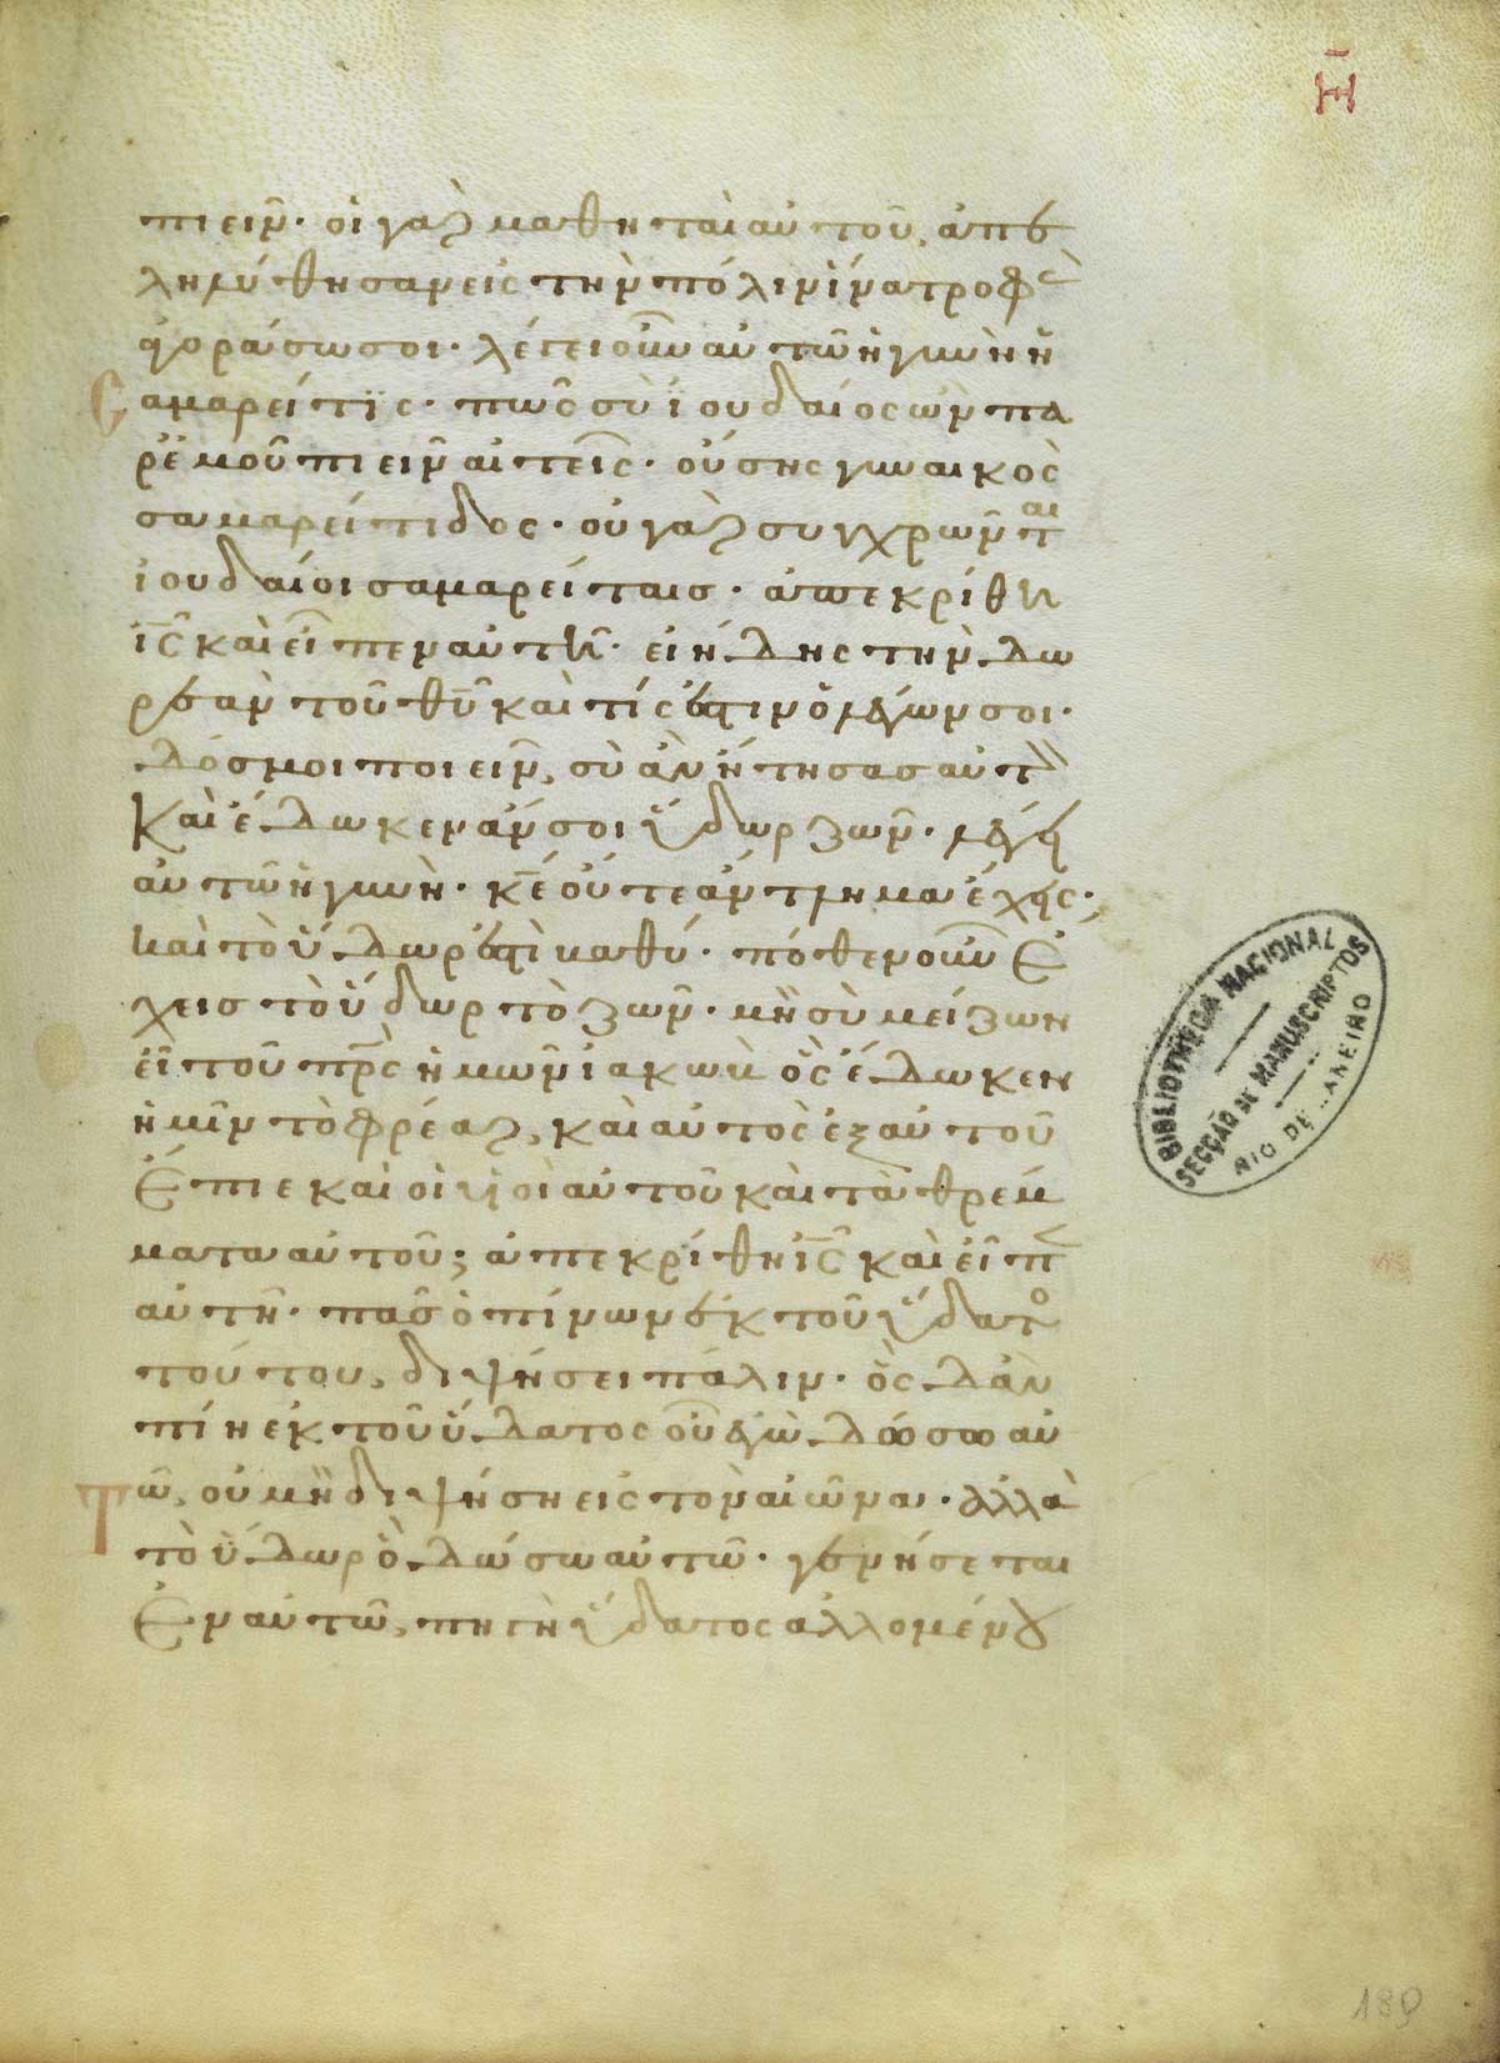 Η̅
πιεῖν· οἱ γὰρ μαθηταὶ αὐτοῦ, ἀπε
ληλύθησαν εἰς τὴν πόλιν ἵνα τροφὰ
ἀγοράσωσοι· λέγει οὖν αὐτῶ ἡ γυνὴ ἡ
σαμαρείτϊς· πῶς σὺ ϊουδαίος ὢν πα
ρ' ἐμοῦ πιεῖν αἰτεῖς· οὔσης γυναικὸς
σαμαρείτιδος· οὐ γὰρ συγχρῶνται
ἰουδαίοι σαμαρείταισ· ἀπεκρίθη
ἰ̅ς̅ καὶ εἶπεν αὐτῆ· εἰ ἤδης τὴν δω
ρεὰν τοῦ θ̅υ̅ καὶ τίς ἐστιν ὁ λέγων σοι·
δόσμοι ποιεῖν, σὺ ἂν ἤτησασ αὐτ
καὶ ἔδωκεν ἄν σοι ὕδωρ ζῶν· λέγει
αὐτῶ ἡ γυνὴ· κ̅ε̅ οὔτε ἄντλημα ἔχεις·
καὶ τὸ ὕδωρ ἐστὶ καθύ· πόθεν οὖν ἔ
χεισ τὸ ὕδωρ τὸ ζῶν· μὴ σὺ μείζων
εἶ τοῦ π̅ρ̅ς̅ ἡμῶν ἰακὼβ ὃς ἔδωκεν
ἡμῖν τὸ φρέαρ, καὶ αὐτὸς ἐξ αὐτοῦ
ἔπιε καὶ οἱ υἱοὶ αὐτοῦ καὶ τὰ θρέμ
ματα αὐτοῦ; ἀπεκρίθη ἰ̅ς̅ καὶ εἶπ
αὐτῆ· πᾶσ ὁ πίνων ἐκ τοῦ ὕδατο
τούτου, διψήσει πάλιν· ὃς δ' ἂν
πίη ἐκ τοῦ ὕδατος οὗ ἐγὼ δώσω αὐ
τῶ, οὐ μὴ διψήση εἰς τὸν αἰῶνα· ἀλλὰ
τὸ ὕδωρ ὃ δώσω αὐτῶ· γενήσεται
ἐν αὐτῶ, πηγὴ ὕδατος ἁλλομένου
BIBLIOTHECA NACIONAL
SECÇÃO DE MANUSCRIPTOS
RIO DE JANEIRO
189